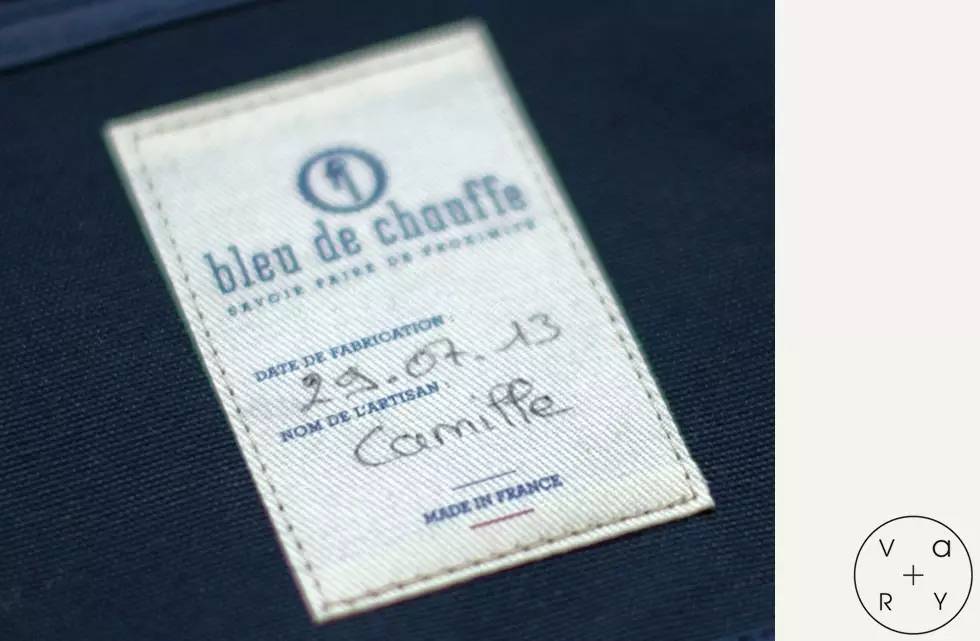 bleu de chauffe
SAVOIR FAIRE DE PROXIMITÉ
DATE DE FABRICATION :
29.07.13
NOM DE L'ARTISAN :
Camille
MADE IN FRANCE
V a
R Y